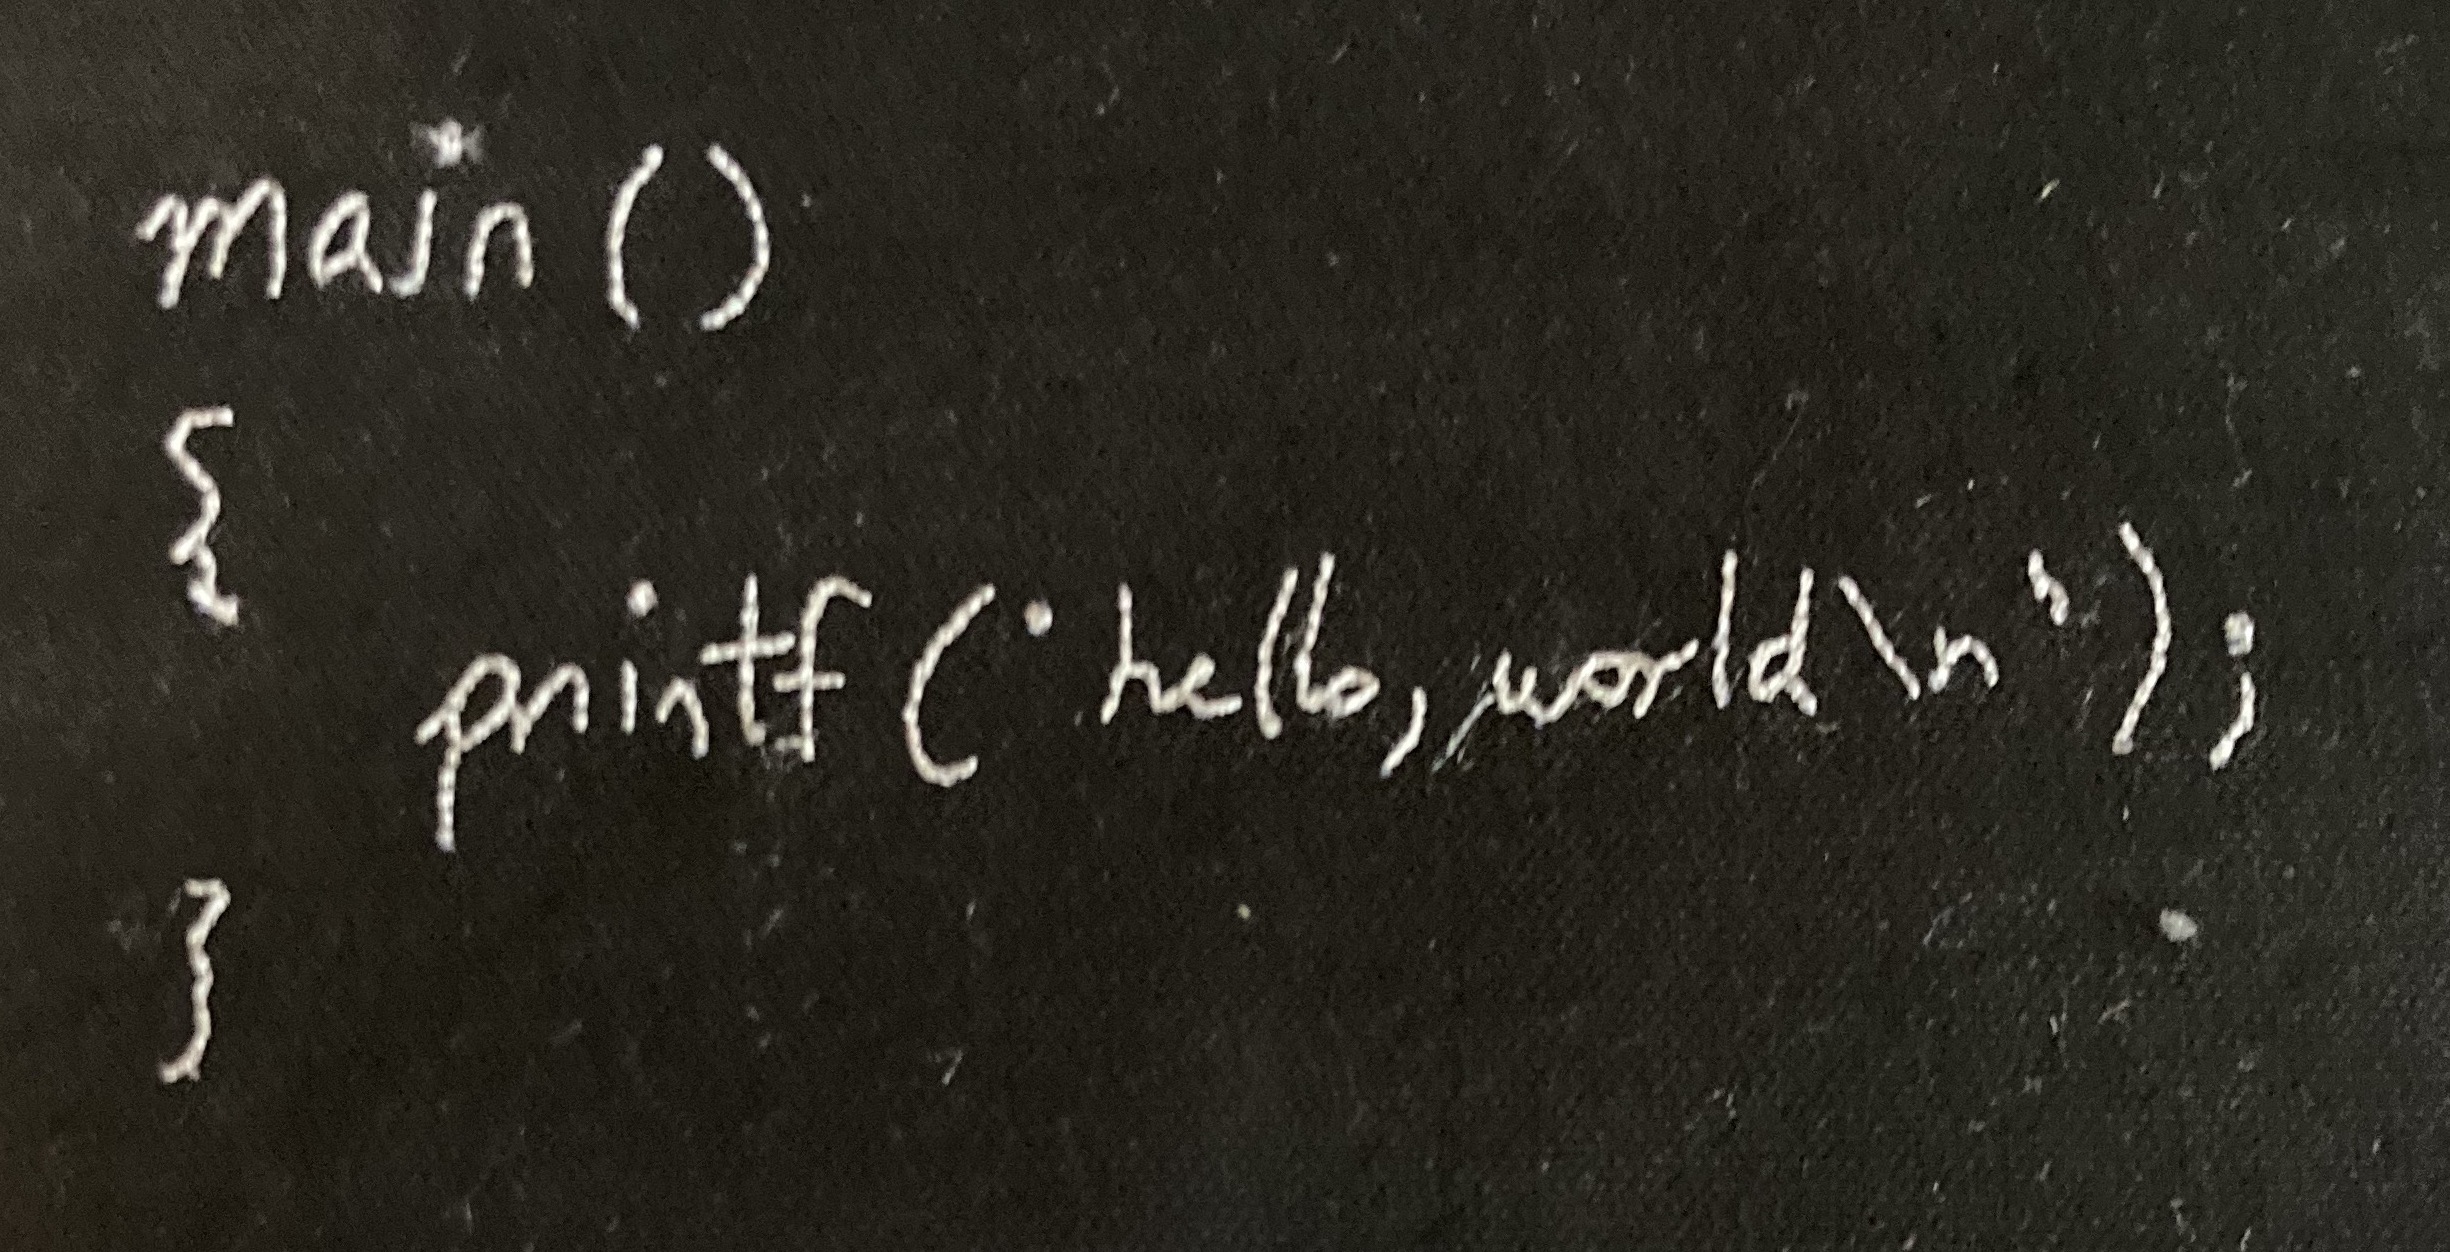 main()
{
printf("hello, world\n");
}